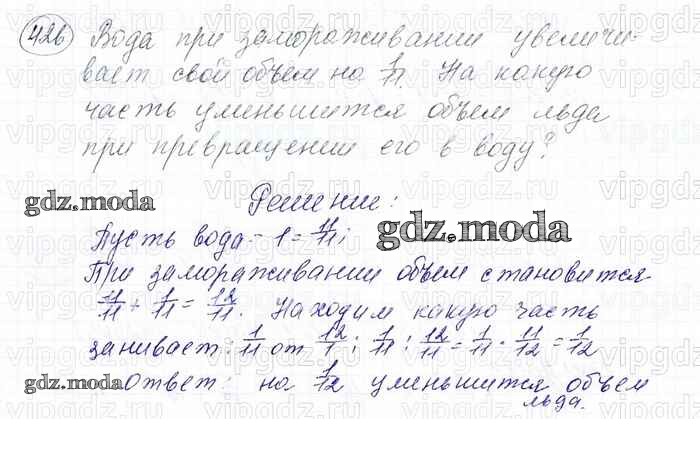 426 Вода при замораживании увеличи-
вает свой объем на 1/11. На какую
часть уменьшится объем льда
при превращении его в воду?
gdz.moda Решение:
Пусть вода - 1 = 11/11; gdz.moda
При замораживании объем становится
11/11 + 1/11 = 12/11. Находим какую часть
занивает: 1/11 от 12/1; 1/11 : 12/11 = 1/11 · 11/12 = 1/12
gdz.moda Ответ: на 1/12 уменьшится объем
льда.